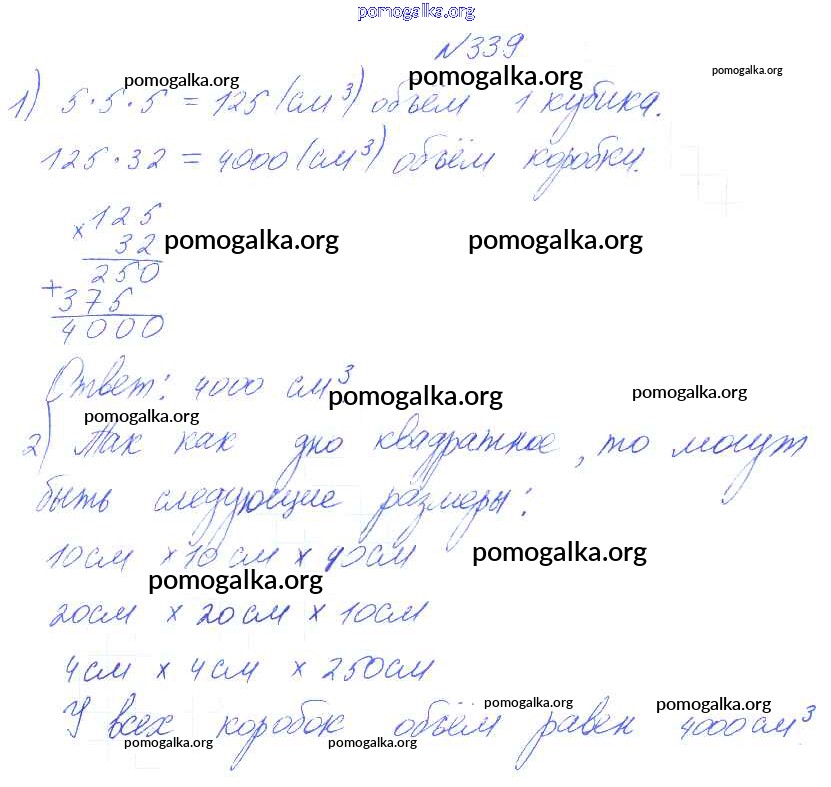 pomogalka.org
№339
pomogalka.org pomogalka.org pomogalka.org
1) 5·5·5 = 125 (см³) объём 1 кубика.
125·32 = 4000 (см³) объём коробки.
×125
32
pomogalka.org pomogalka.org
250
+375
4000
Ответ: 4000 см³
pomogalka.org pomogalka.org
pomogalka.org
2) Так как дно квадратное, то могут
быть следующие размеры:
10см × 10см × 40см
pomogalka.org
pomogalka.org
20см × 20см × 10см
4см × 4см × 250см
pomogalka.org pomogalka.org
У всех коробок объём равен 4000см³
pomogalka.org pomogalka.org